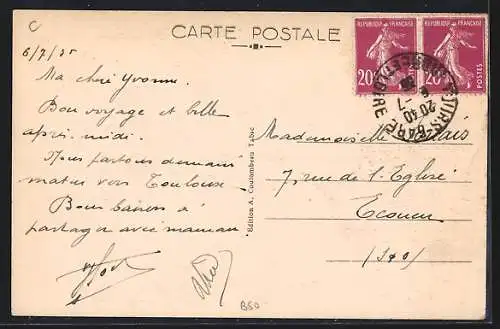 C
CARTE POSTALE
6/7/35
Ma chère Yvonne.
Bon voyage et belle
après-midi.
Nous partons demain
matin vers Toulouse.
Bons baisers à
partager avec maman
Edition A. Coulombeau
REPUBLIQUE FRANÇAISE
REPUBLIQUE FRANÇAISE
20c
20c
POSTES
TOURS-GARE
INDRE-ET-LOIRE
20 40
6 -7
35
Mademoiselle
7, rue de l'Eglise
Ecouen
(S&O)
B50